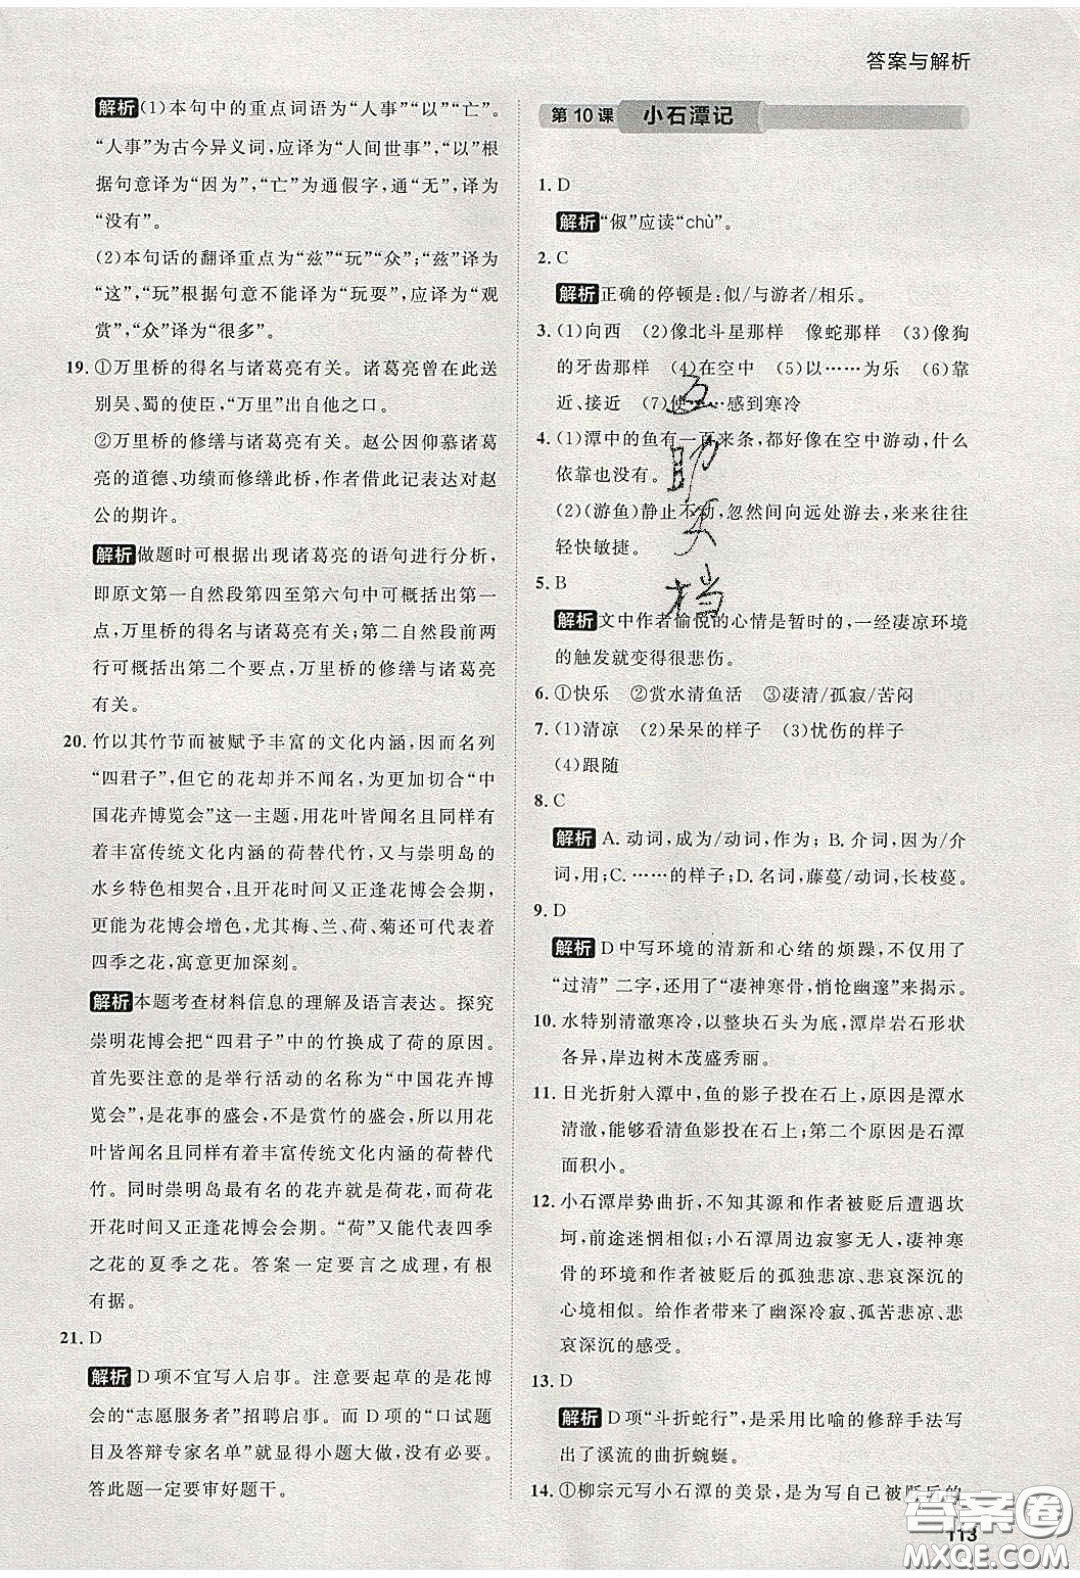 答案与解析
解析 (1)本句中的重点词语为“人事”“以”“亡”。
“人事”为古今异义词,应译为“人间世事”,“以”根
据句意译为“因为”,“亡”为通假字,通“无”,译为
“没有”。
(2)本句话的翻译重点为“兹”“玩”“众”;“兹”译为
“这”,“玩”根据句意不能译为“玩耍”,应译为“观
赏”,“众”译为“很多”。
19. ①万里桥的得名与诸葛亮有关。诸葛亮曾在此送
别吴、蜀的使臣,“万里”出自他之口。
②万里桥的修缮与诸葛亮有关。赵公因仰慕诸葛
亮的道德、功绩而修缮此桥,作者借此记表达对赵
公的期许。
解析 做题时可根据出现诸葛亮的语句进行分析,
即原文第一自然段第四至第六句中可概括出第一
点,万里桥的得名与诸葛亮有关;第二自然段前两
行可概括出第二个要点,万里桥的修缮与诸葛亮
有关。
20. 竹以其竹节而被赋予丰富的文化内涵,因而名列
“四君子”,但它的花却并不闻名,为更切合“中
国花卉博览会”这一主题,用花叶皆闻名且同样有
着丰富传统文化内涵的荷替代竹,又与崇明岛的
水乡特色相契合,且开花时间又正逢花博会会期,
更能为花博会增色,尤其梅、兰、荷、菊还可代表着
四季之花,寓意更加深刻。
解析 本题考查材料信息的理解及语言表达。探究
崇明花博会把“四君子”中的竹换成了荷的原因。
首先要注意的是举行活动的名称为“中国花卉博
览会”,是花事的盛会,不是赏竹的盛会,所以用花
叶皆闻名且同样有着丰富传统文化内涵的荷替代
竹。同时崇明岛最有名的花卉就是荷花,荷花的
花开时间又正逢花博会会期。“荷”又能代表四季
之花的夏季之花。答案一定要言之成理,有根
有据。
21. D
解析 D项不宜写入启事。注意要起草的是花博
会的“志愿服务者”招聘启事。而D项的“口试题
目及答辩专家名单”就显得小题大做,没有必要。
答此题一定要审好题干。
第10课 小石潭记
1. D
解析 “俶”应读“chù”。
2. C
解析 正确的停顿是:似/与游者/相乐。
3. (1)向西 (2)像北斗星那样 像蛇那样 (3)像狗
的牙齿那样 (4)在空中 (5)以……为乐 (6)靠
近、接近 (7)使……感到寒冷
4. (1)潭中的鱼有一百来条,都好像在空中游动,什么
依靠也没有。
(2)(游鱼)静止不动,忽然间向远处游去,来来往往
轻快敏捷。
5. B
解析 文中作者愉悦的心情是暂时的,一经凄凉环境
的触发就变得很悲伤。
6. ①快乐 ②赏水清鱼活 ③凄清/孤寂/苦闷
7. (1)清凉 (2)呆呆的样子 (3)忧伤的样子
(4)跟随
8. C
解析 A. 动词,成为/动词,作为; B. 介词,因为/介
词,用;C. ……的样子;D. 名词,藤蔓/动词,长枝蔓。
9. D
解析 D中写环境的清新和心绪的烦躁,不仅用了
“过清”二字,还用了“凄神寒骨,悄怆幽邃”来揭示。
10. 水特别清澈寒冷,以整块石头为底,潭岸岩石形状
各异,岸边树木茂盛秀丽。
11. 日光折射入潭中,鱼的影子投在石上,原因是潭水
清澈,能够看清鱼影投在石上;第二个原因是石潭
面积小。
12. 小石潭岸势曲折,不知其源和作者被贬后遭遇坎
坷,前途迷惘相似;小石潭周边寂寥无人,凄神寒
骨的环境和作者被贬后的孤独悲凉、悲哀深沉的
心境相似。给作者带来了幽深冷寂、孤苦悲凉、悲
哀深沉的感受。
13. D
解析 D项“斗折蛇行”,是采用比喻的修辞手法写
出了溪流的曲折蜿蜒。
14. ①柳宗元写小石潭的美景,是为写自己被贬后的
113
互助文档
答案圈
MXQE.COM